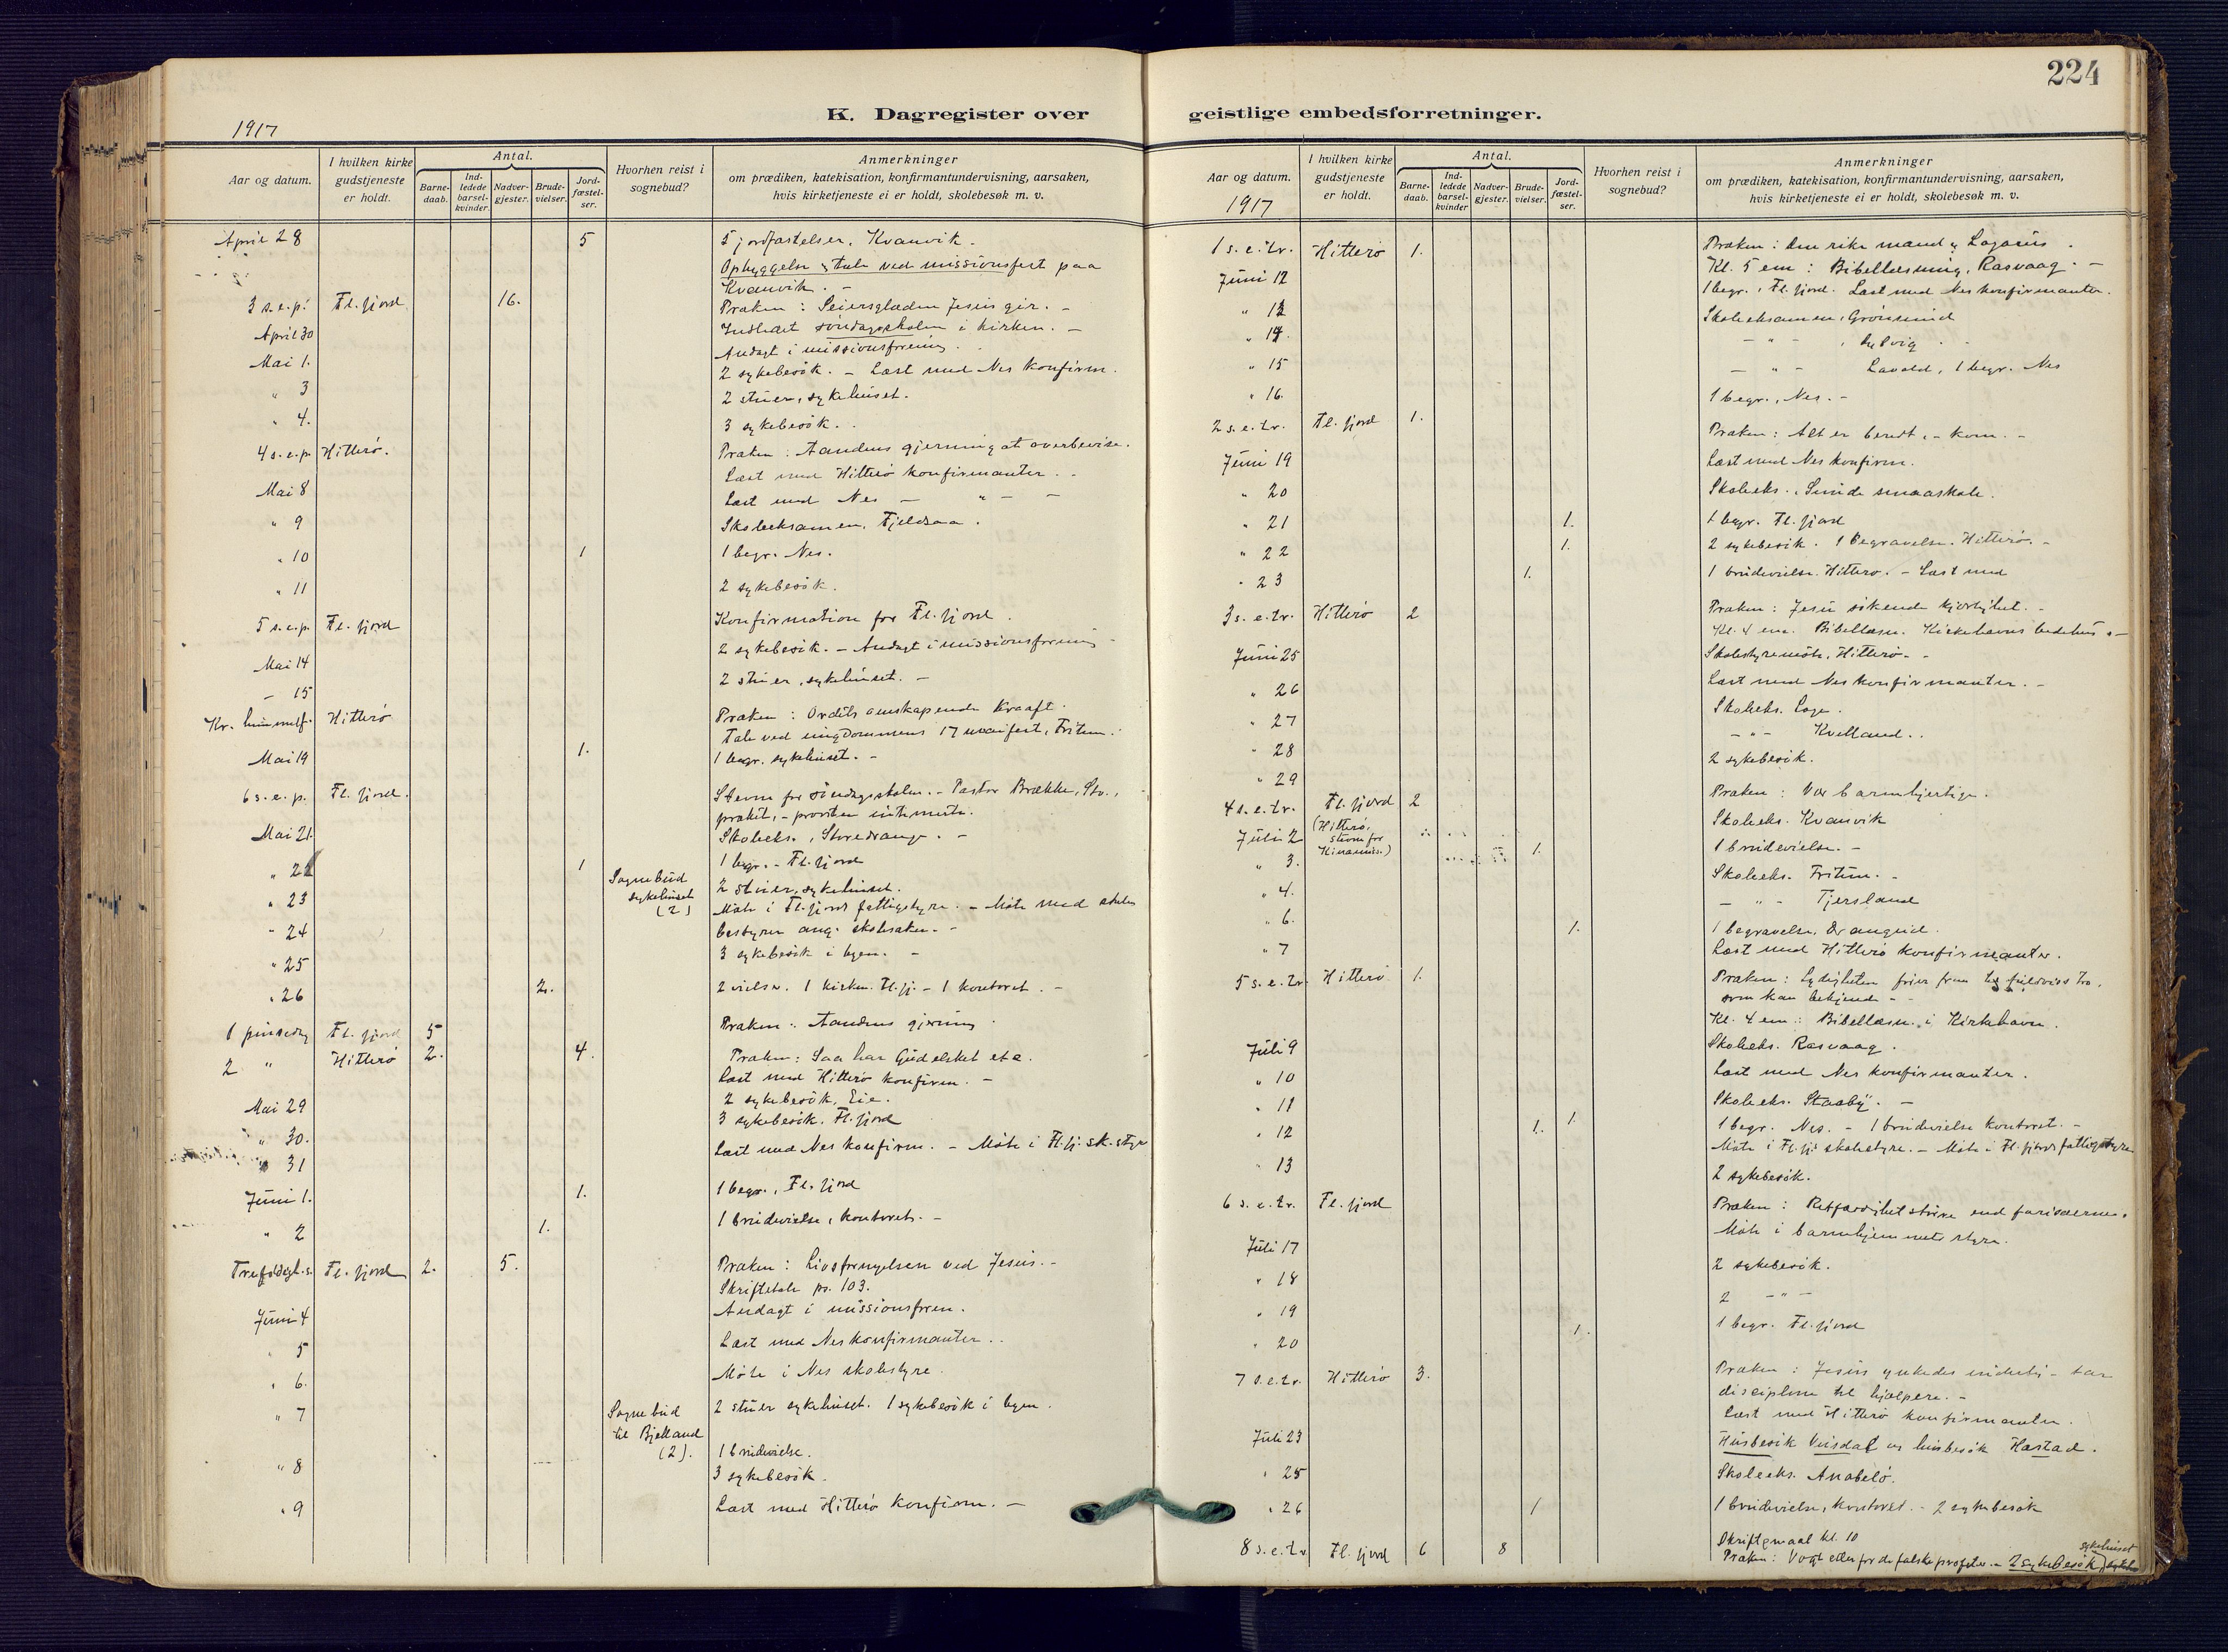 224
K. Dagregister over
geistlige embedsforretninger.
1917
Aar og datum.
I hvilken kirke gudstjeneste er holdt.
Antal.
Barne-daab.
Ind-ledede barsel-kvinder.
Nadver-gjester.
Brude-vielser.
Jord-fæstel-ser.
Hvorhen reist i sognebud?
Anmerkninger
om prædiken, katekisation, konfirmantundervisning, aarsaken,
hvis kirketjeneste ei er holdt, skolebesøk m. v.
April 28 5 5 jordfæstelser, Kvanvik.
Opbyggelse & tale ved missionsfest paa
Kvanvik. -
3 s.e.p. Fl. fjord 16. Præken: Seiersglæden Jesus gir. -
April 30 Indledet söndagsskolen i kirken. -
Andagt i missionsforening.
Mai 1. 2 sykebesök. - Læst med Nes konfirm.
" 3 2 stuer, sykehuset.
" 4. 3 sykebesök.
4 s.e.p. Hitterö. Præken: Aandens gjerning at overbevise.
Læst med Hitterö konfirmanter.
Mai 8 Læst med Nes - " -
" 9 Skoleeksamen, Fjeldsaa.
" 10 1 1 begr. Nes.
" 11 2 sykebesök.
5 s.e.p. Fl. fjord Konfirmation for Fl. fjord.
Mai 14 2 sykebesök. - Andagt i missionsforening
- 15 2 stuer, sykehuset. -
Kr. himmelf. Hitterö Præken: Ordets omskapende kraft.
Tale ved ungdommens 17 maifest, Fritun.
Mai 19 1. 1 begr. sykehuset. -
6 s.e.p. Fl. fjord. Stevne for söndagsskolen. - Pastor Brække, Stv.,
præket, - provsten intimerte.
Mai 21. Skoleeks., Storedrange. -
" 22 1 1 begr. - Fl. fjord
" 23 Sognebud sykehuset (2) 2 stuer, sykehuset.
Möte i Fl. fjord fattigstyre. - Möte med skole
" 24 bestyrer ang. skolesaken. -
" 25 3 sykebesök i byen. -
" 26 2. 2 vielser. 1 kirken. Fl. fj. - 1 kontoret. -
1 pinsedag Fl. fjord 5 Præken: Aandens gjerning.
2 " Hitterö 2. 4. Præken: Saa har Gud elsket etc.
Læst med Hitterö konfirm. -
Mai 29 2 sykebesök, Eie.
" 30. 3 sykebesök. Fl. fjord
" 31 Læst med Nes konfirm. - Möte i Fl. fj. sk. styre
Juni 1. 1. 1 begr., Fl. fjord
" 2 1. 1 brudevielse, kontoret. -
Trefoldigh.s. Fl. fjord 2. 5. Præken: Livsfornyelsen ved Jesus. -
Skriftetale ps. 103.
Juni 4 Andagt i missionsforen.
" 5 Læst med Nes konfirmanter.
" 6. Möte i Nes skolestyre.
" 7 Sognebud til Bjelland (2). 2 stuer sykehuset. 1 sykebesök i byen.
1 brudevielse.
" 8 3 sykebesök.
" 9 Læst med Hitterö konfirm. -
Aar og datum.
1917
I hvilken kirke gudstjeneste er holdt.
Antal.
Barne-daab.
Ind-ledede barsel-kvinder
Nadver-gjester.
Brude-vielser.
Jord-fæstel-ser.
Hvorhen reist i sognebud?
Anmerkninger
om prædiken, katekisation, konfirmantundervisning, aarsaken,
hvis kirketjeneste ei er holdt, skolebesøk m. v.
1 s.e.tr. Hitterö 1. Præken: Den rike mand & Lazarus.
Kl. 5 em: Bibellæsning, Rasvaag. -
Juni 12 1 begr., Fl. fjord. Læst med Nes konfirmanter.
" 13 Skoleeksamen, Grönsund
" 14. - " -
" 15 - " - Lavold, 1 begr. Nes
" 16. 1 begr., Nes. -
2 s.e.tr. Fl. fjord 1. Præken: Alt er beredt, - kom. -
Juni 19 Læst med Nes konfirm.
" 20 Skoleeks., Sunde smaaskole.
" 21 1. 1 begr. Fl. fjord
" 22 1. 2 sykebesök. 1 begravelse. Hitterö. -
" 23 1. 1 brudevielse. Hitterö. - Læst med
3 s.e.tr. Hitterö 2 Præken: Jesu sökende kjærlighet. -
Kl. 4 em. Bibellæsn. Kirkehavns bedehus. -
Juni 25 Skolestyremöte, Hitterö. -
" 26 Læst med Nes konfirmanter. -
" 27 Skoleeks. Loge.
" 28 - " - Kvelland.
" 29 2 sykebesök.
4 s.e.tr. Fl. fjord 2 Præken: Vær barmhjertige.
(Hitterö, stevne for Kinamiss.)
Juli 2 Skoleeks. Kvanvik
" 3. 1. 1 brudevielse. -
" 4. Skoleeks. Fritun. -
" 6. - " - Tjersland
" 7 1. 1 begravelse, Drangeid.
Læst med Hitterö konfirmanter.
5 s.e.tr. Hitterö 1. Præken: Lydigheten frier frem til fuldviss tro,
som kan bekjende -
Kl. 4 em: Bibellæsn. i Kirkehavn.
Juli 9 Skoleeks. Rasvaag.
" 10 Læst med Nes konfirmanter.
" 11 Skoleeks. Staaby. -
" 12 1. 1. 1 begr. Nes. - 1 brudevielse kontoret. -
Möte i Fl. fj. skolestyre. - Möte i Fl. fjords fattigstyre
" 13 2 sykebesök.
6 s.e.tr. Fl. fjord Præken: Retfærdighet större end farisæernes.
Juli 17 Möte i barnehjemmets styre.
" 18 2 sykebesök.
" 19 2 - " -
" 20 1. 1 begr. Fl. fjord
7 s.e.tr. Hitterö 3. Præken: Jesus ynkedes inderlig - tar
disciplene til hjælpere. -
Læst med Hitterö konfirmanter.
Juli 23 Husbesök Veisdal og husbesök Hæstad.
" 25 Skoleeks. Anabelö.
" 26 1 1 brudevielse, kontoret. - 2 sykebesök
8 s.e.tr. Fl. fjord 6 8 Skriftemaal kl. 10
Præken: Vogt eder for de falske profeter. - 2 sykebesök sykehuset